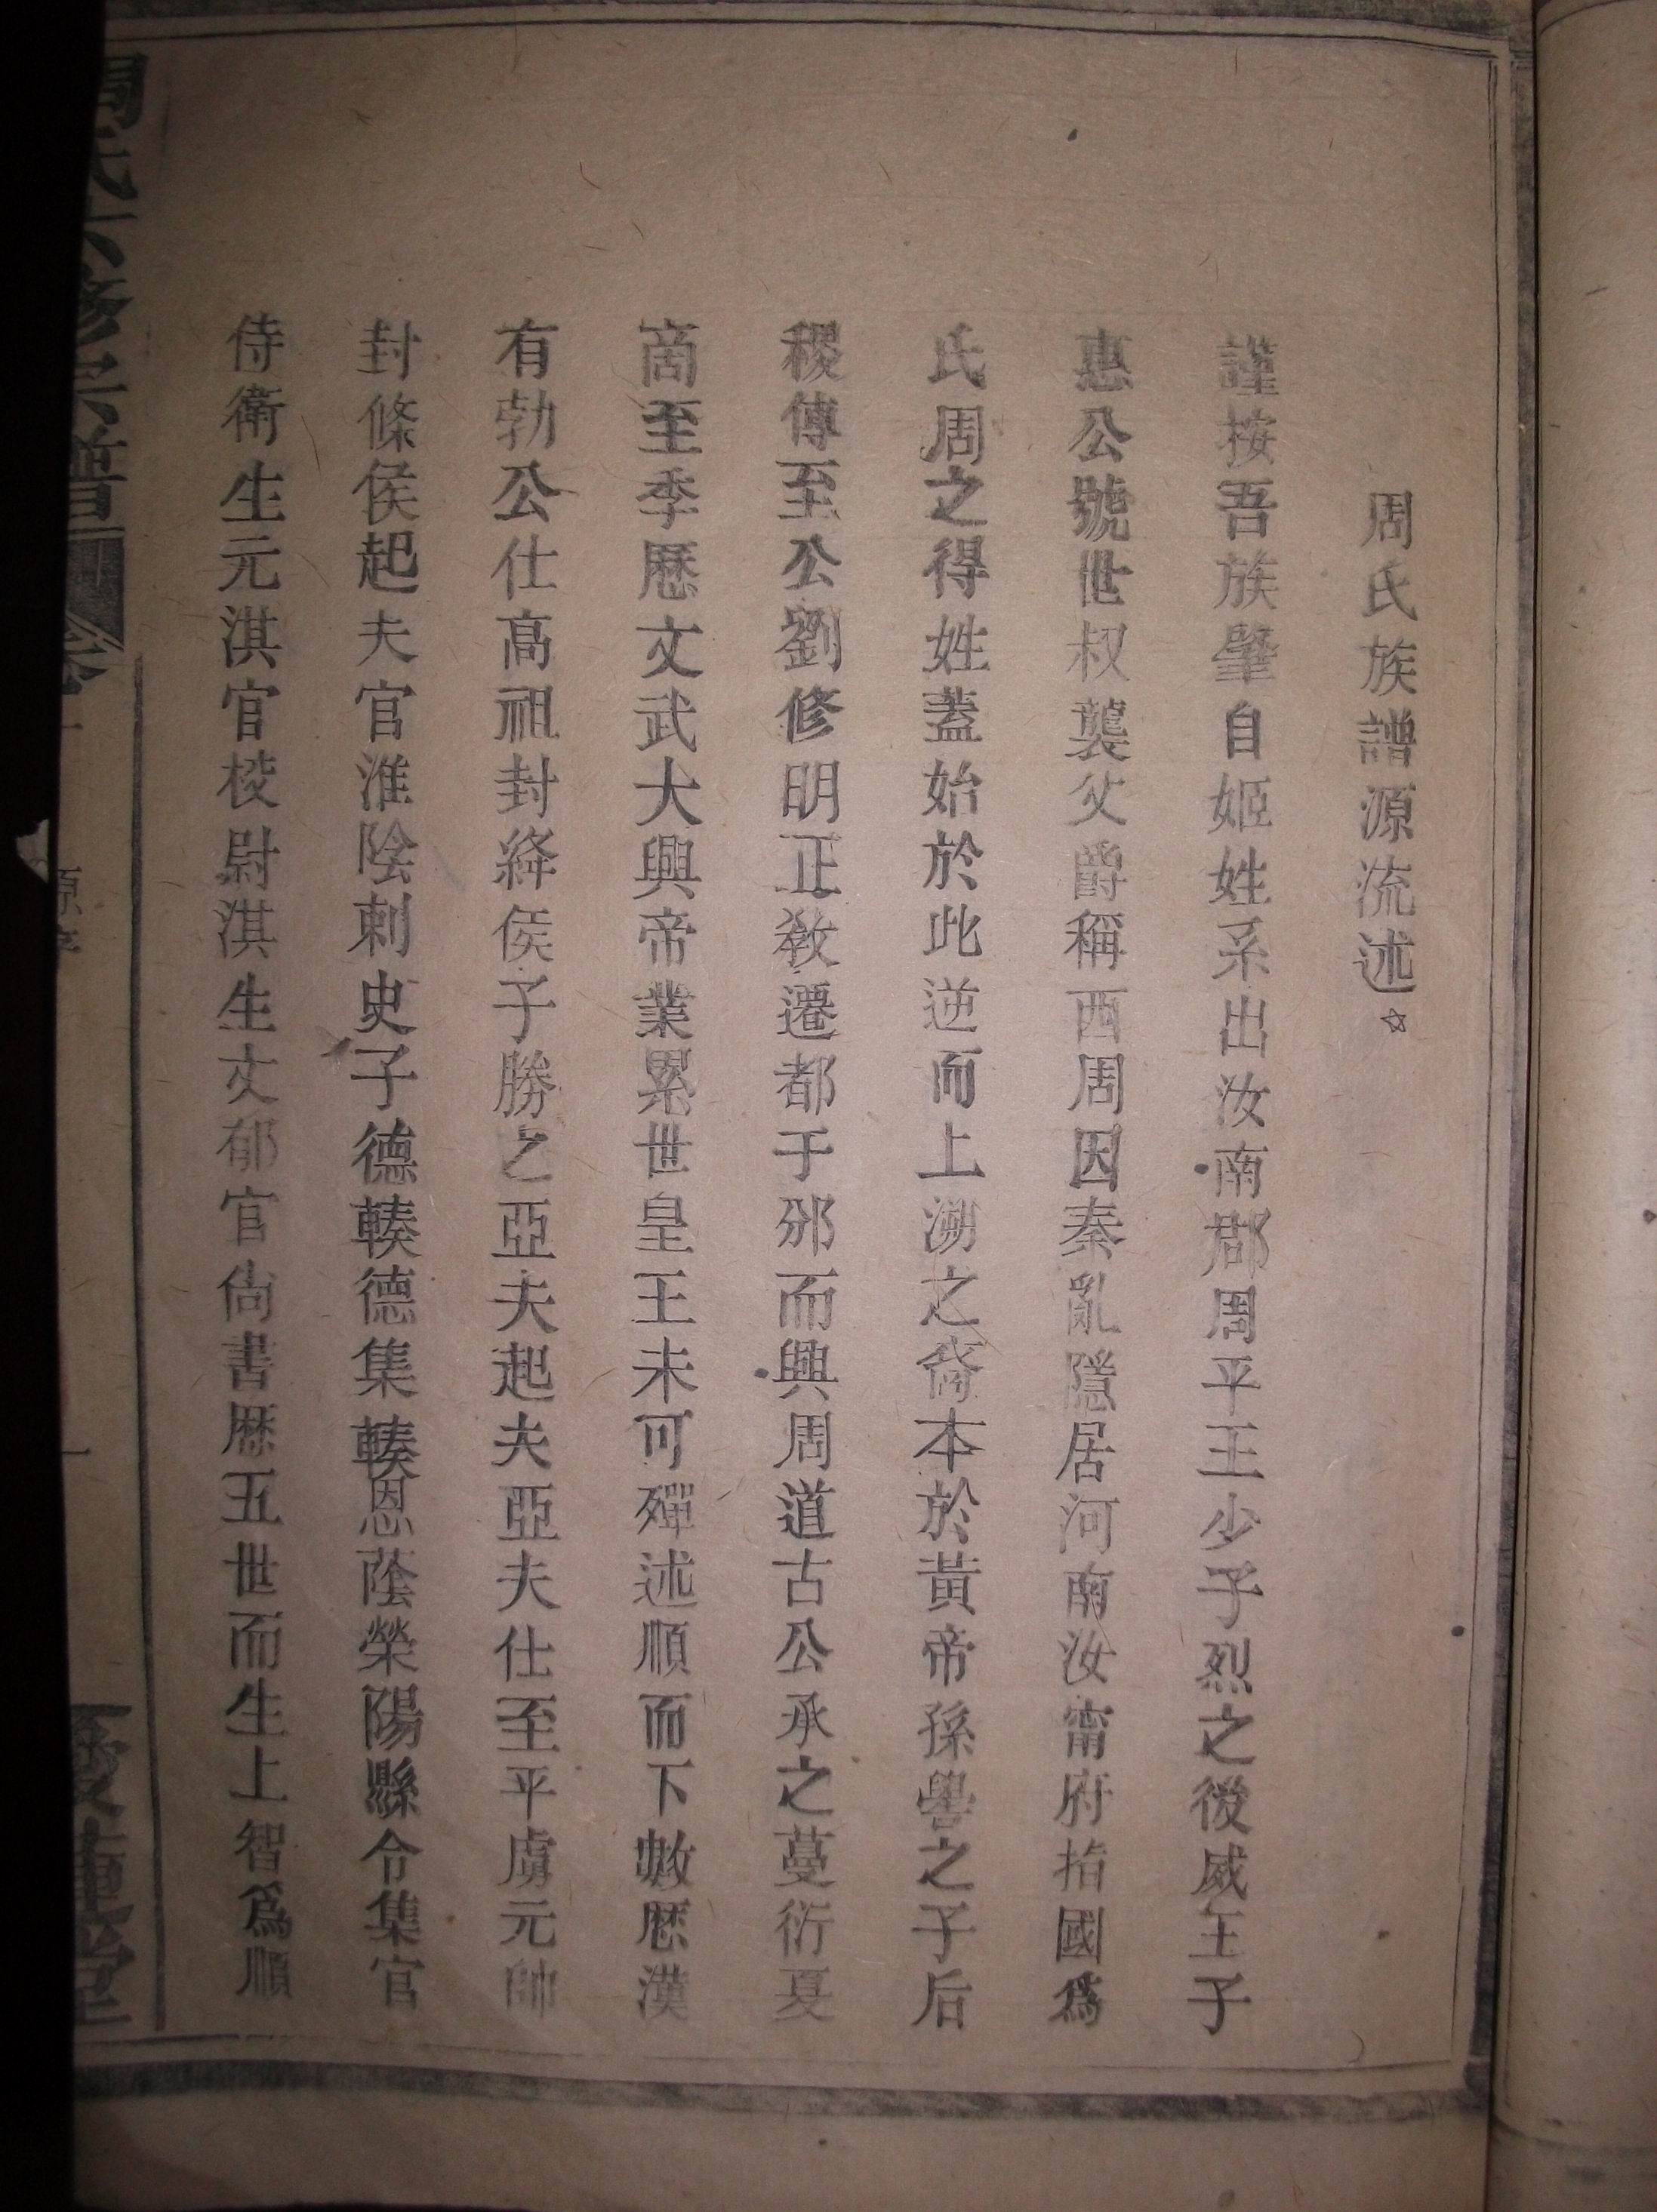 周氏族譜源流述☆
謹按吾族肇自姬姓系出汝南郡周平王少子烈之後威王子
惠公號世叔襲父爵稱西周因秦亂隱居河南汝甯府指國爲
氏周之得姓蓋始於此逆而上溯之裔本於黃帝孫嚳之子后
稷傳至公劉修明正敎遷都于邠而興周道古公承之蔓衍夏
啇至季歷文武大興帝業累世皇王未可殫述順而下數歷漢
有勃公仕高祖封絳侯子勝之亞夫起夫亞夫仕至平虜元帥
封條侯起夫官淮陰刺史子德輳德集輳恩蔭榮陽縣令集官
侍衛生元淇官校尉淇生文郁官尙書歴五世而生上智爲順
周氏六修宗譜 卷一 源序 一 愛蓮堂